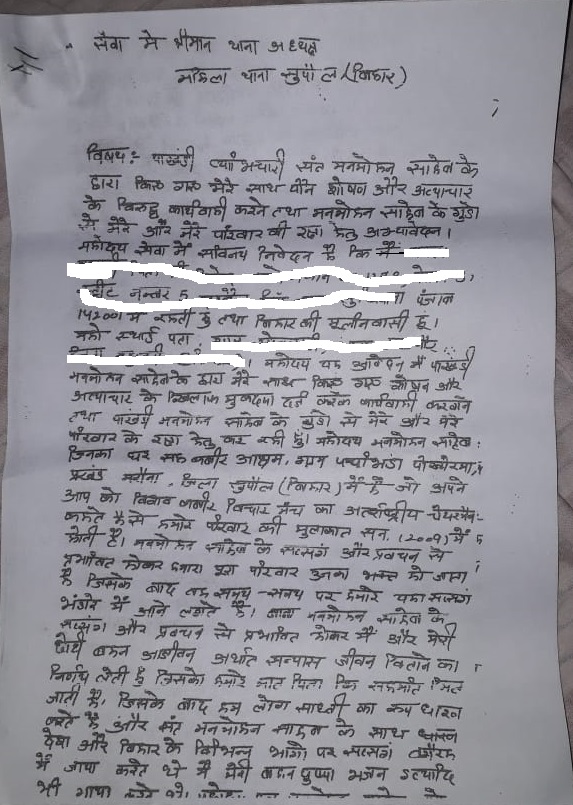 सेवा मे श्रीमान थाना अध्यक्ष
महिला थाना सुपौल (बिहार)
विषय:- पाखंडी व्याभचारी संत मनमोहन साहेब के
द्वारा किए गए मेरे साथ यौन शोषण और अत्याचार
के विरुद्ध कार्यवाही करने तथा मनमोहन साहेब के गुंडो
से मेरे और मेरे परिवार की रक्षा हेतु
महोदय सेवा में सविनय निवेदन है कि मैं
स्ट्रीट नम्बर पंजाब
में रहती हुं तथा बिहार की मूलनिवासी हुं।
स्थाई पता
महोदय यह आवेदन मैं पाखंडी
मनमोहन साहेब के द्वारा मेरे साथ किए गए शोषण और
अत्याचार के खिलाफ मुकदमा दर्ज करके कार्यवाही करवाने
तथा पाखंडी मनमोहन साहेब के गुंडो से मेरे और मेरे
परिवार के रक्षा हेतु कर रही हुं। महोदय मनमोहन साहेब
जिनका घर सह कबीर आश्रम, ग्राम
प्रखंड मरौना, जिला सुपौल (बिहार) में है जो अपने
आप को विश्व कबीर विचार मंच का अर्न्तराष्ट्रीय चेयरमैन
कहते है से हमारे परिवार की मुलाकात सन् (2009) में
होती है। मनमोहन साहेब के सत्संग और प्रवचन से
प्रभावित होकर हमारा पूरा परिवार उनका भक्त हो जाता
है जिसके बाद वह समय-समय पर हमारे यहा सत्संग
भंडारे में आने लगते है। बाबा मनमोहन साहेब के
सत्संग और प्रवचन से प्रभावित होकर मैं और मेरी
छोटी बहन आजीवन अर्थात सन्यास जीवन बिताने का
निर्णय लेती है जिसको हमारे मात पिता कि सहमति मिल
जाती है, जिसके बाद हम लोग साध्वी का रूप धारण
करते है और संत मनमोहन साहब के साथ
और बिहार के विभिन्न भागो पर सत्संग
में जाया करते थे मैं मेरी बहन पुष्पा भजन इत्यादि
भी गाया करते थे।